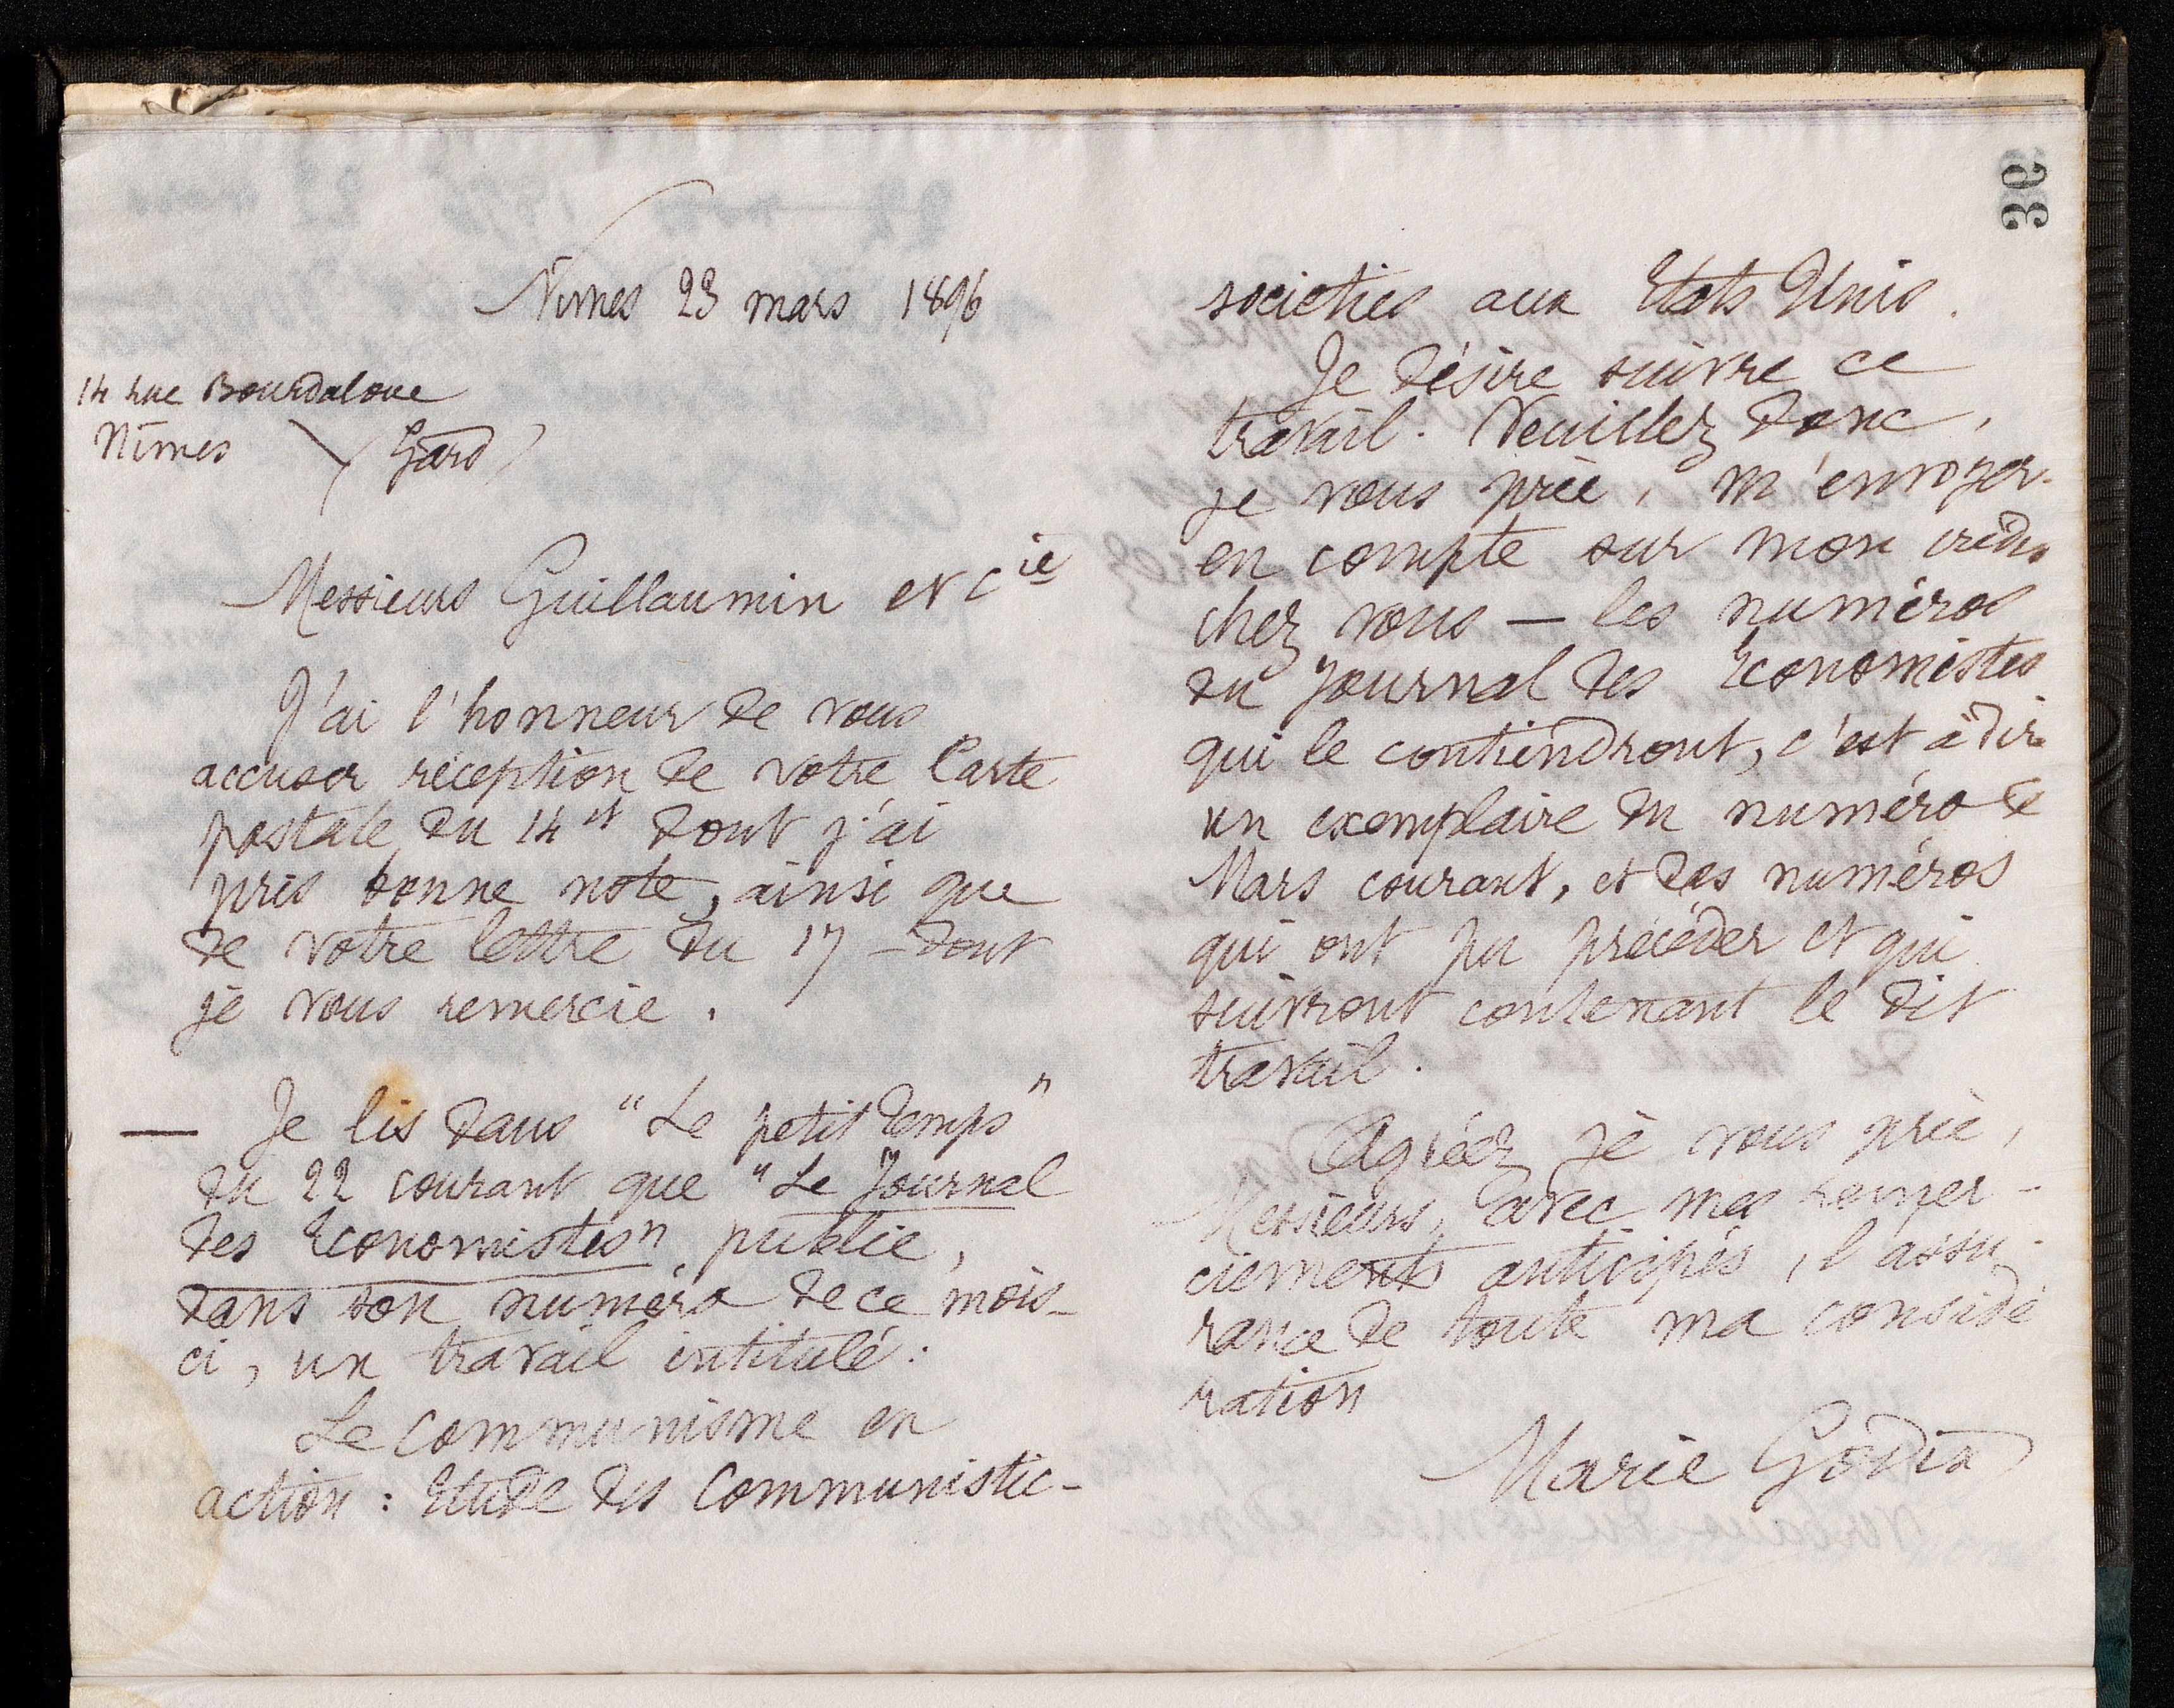 36
Nîmes 23 mars 1896
14 rue Bourdaloue
Nîmes (Gard)
Messieurs Guillaumin et Cie
J'ai l'honneur de vous
accuser réception de votre Carte
postale du 14 ct dont j'ai
pris bonne note, ainsi que
de votre lettre du 17 - dont
je vous remercie.
— Je lis dans "Le petit temps"
du 22 courant que "Le Journal
des Economistes" publie,
dans son numéro de ce mois-
ci, un travail intitulé:
Le communisme en
action : Etude des Communistic-
societies aux Etats Unis.
Je désire suivre ce
travail. Veuillez donc,
je vous prie, m'envoyer.
en compte sur mon crédit
chez vous — les numéros
du Journal des Economistes
qui le contiendront, c'est à dire
un exemplaire du numéro de
Mars courant, et des numéros
qui ont pu précéder et qui
suivront contenant le dit
travail.
Agréez je vous prie,
Messieurs, avec mes remer-
ciements anticipés, l'assu-
rance de toute ma considé
ration
Marie Godin